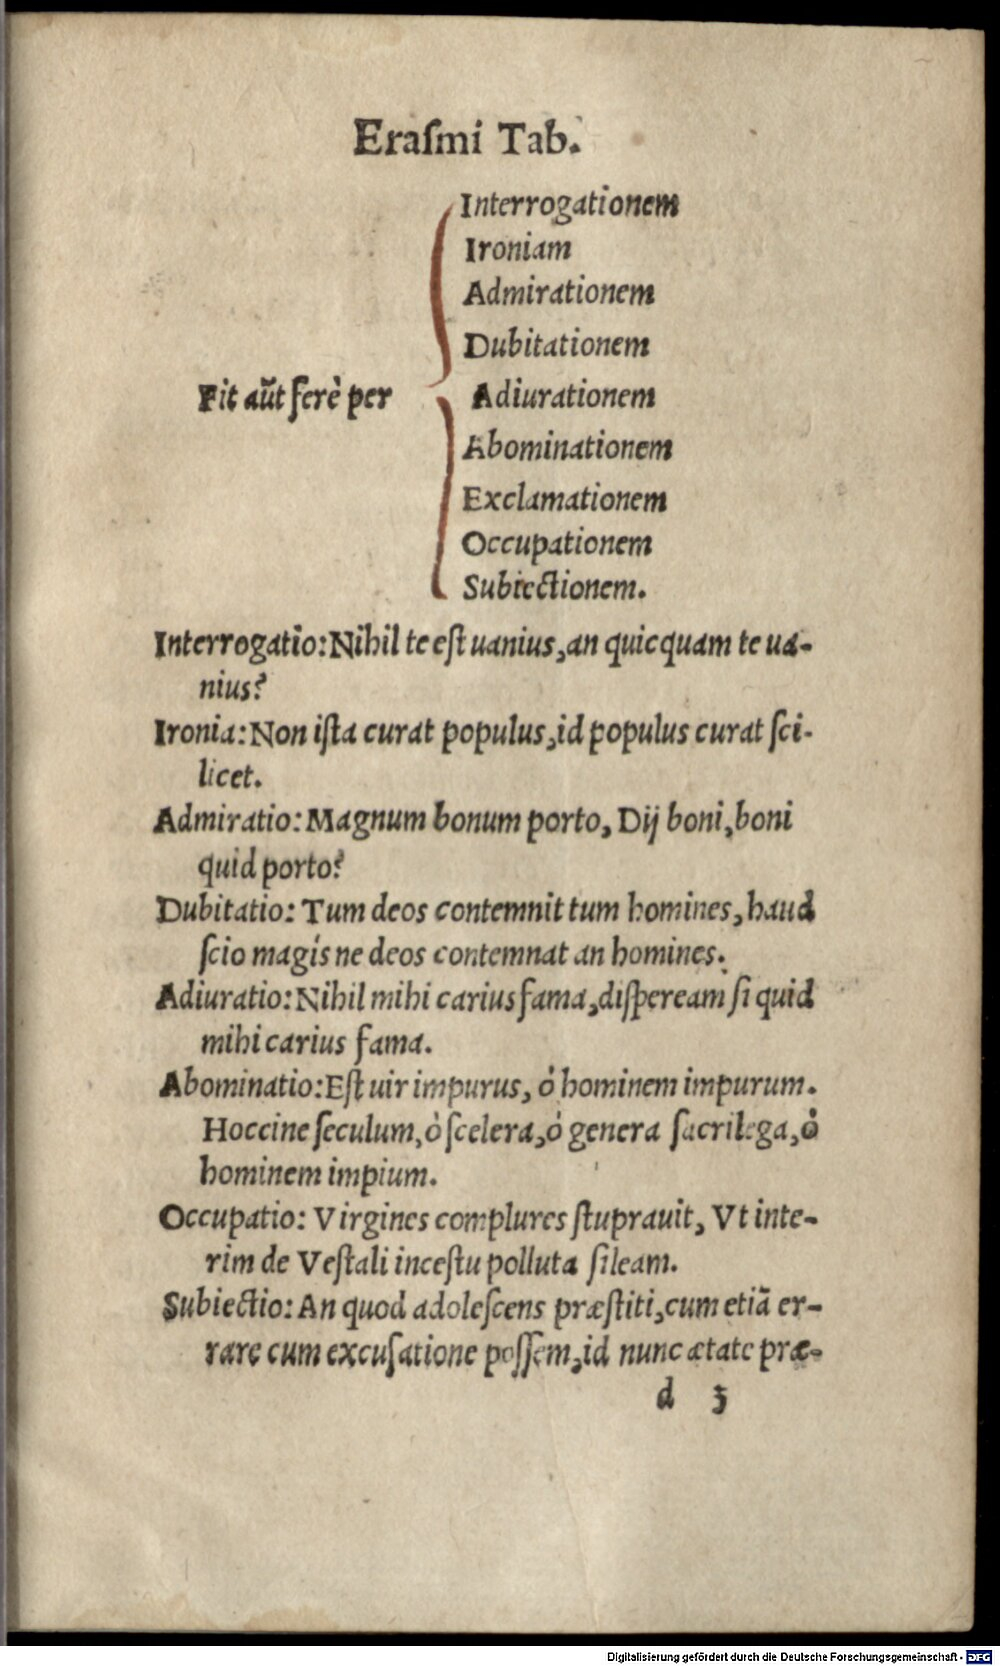 Eraſmi Tab.
Interrogationem
Ironiam
Admirationem
Dubitationem
Fit aũt ferè per
Adiurationem
Abominationem
Exclamationem
Occupationem
Subiectionem.
Interrogatio: Nihil te eſt uanius, an quicquam te ua-
nius?
Ironia: Non iſta curat populus, id populus curat ſci-
licet.
Admiratio: Magnum bonum porto, Dij boni, boni
quid porto?
Dubitatio: Tum deos contemnit tum homines, haud
ſcio magís ne deos contemnat an homines.
Adiuratio: Nihil mihi carius fama, diſpeream ſi quid
mihi carius fama.
Abominatio: Eſt uir impurus, ô hominem impurum.
Hoccine ſeculum, ò ſcelera, ó genera ſacrilega, ô
hominem impium.
Occupatio: Virgines complures ſtuprauit, Vt inte-
rim de Veſtali inceſtu polluta ſileam.
Subiectio: An quod adoleſcens præſtiti, cum etiã er-
rare cum excuſatione poſſem, id nunc ætate præ-
d 3
Digitalisierung gefördert durch die Deutsche Forschungsgemeinschaft - DFG